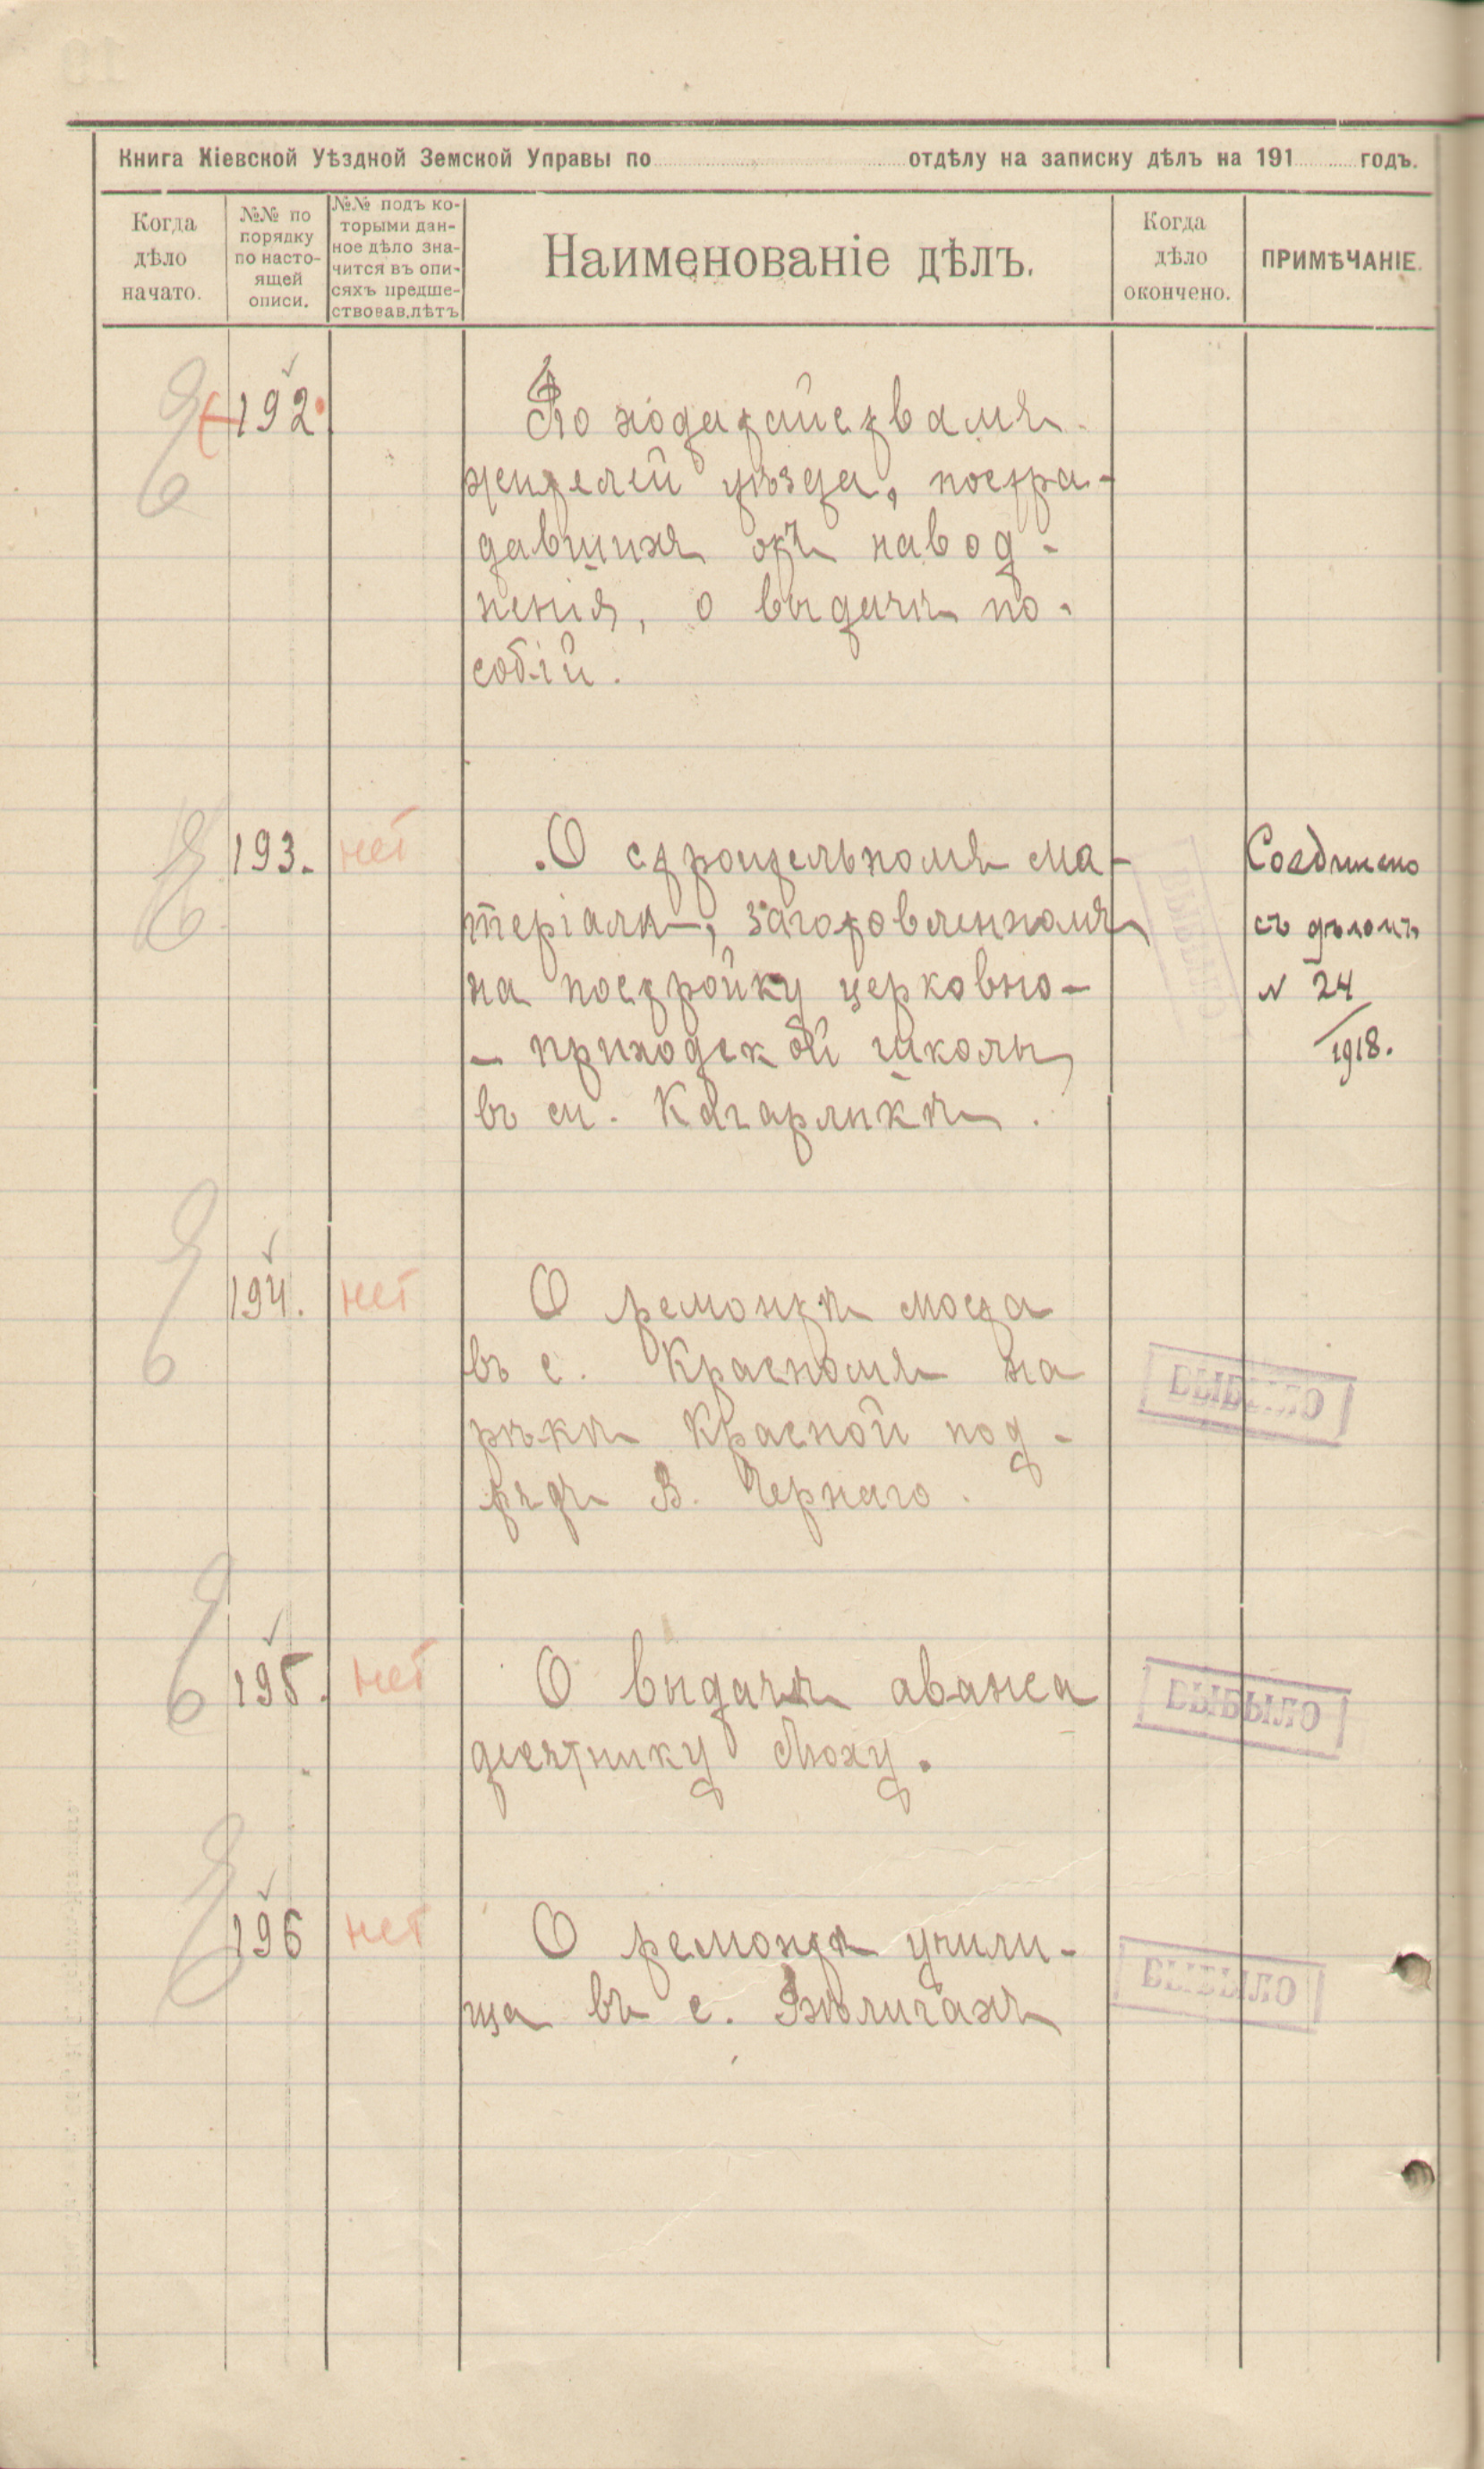 Книга Кіевской Уѣздной Земской Управы по отдѣлу на записку дѣлъ на 191 годъ.
Когда
дѣло
начато.
№№ по
порядку
по насто-
ящей
описи.
№№ подъ ко-
торыми дан-
ное дѣло зна-
чится въ опи-
сяхъ предше-
ствовав.лѣтъ
Наименованіе дѣлъ.
Когда
дѣло
окончено.
ПРИМѢЧАНІЕ.
192. По ходатайствамъ
жителей уѣзда, постра-
давшихъ отъ навод-
ненія, о выдачѣ по-
собій.
193. нет О строительномъ ма-
теріалѣ, заготовленномъ
на постройку церковно-
- приходской школы
въ м. Кагарлыкѣ.
ВЫБЫЛО
Соединено
съ дѣломъ
№ 24
/1918.
194. нет О ремонтѣ моста
въ с. Красномъ на
рѣкѣ Красной под-
рядъ В. Чернаго.
ВЫБЫЛО
195. нет О выдачѣ аванса
десятнику Люху.
ВЫБЫЛО
196 нет О ремонтѣ учили-
ща въ с. Бѣличахъ
ВЫБЫЛО